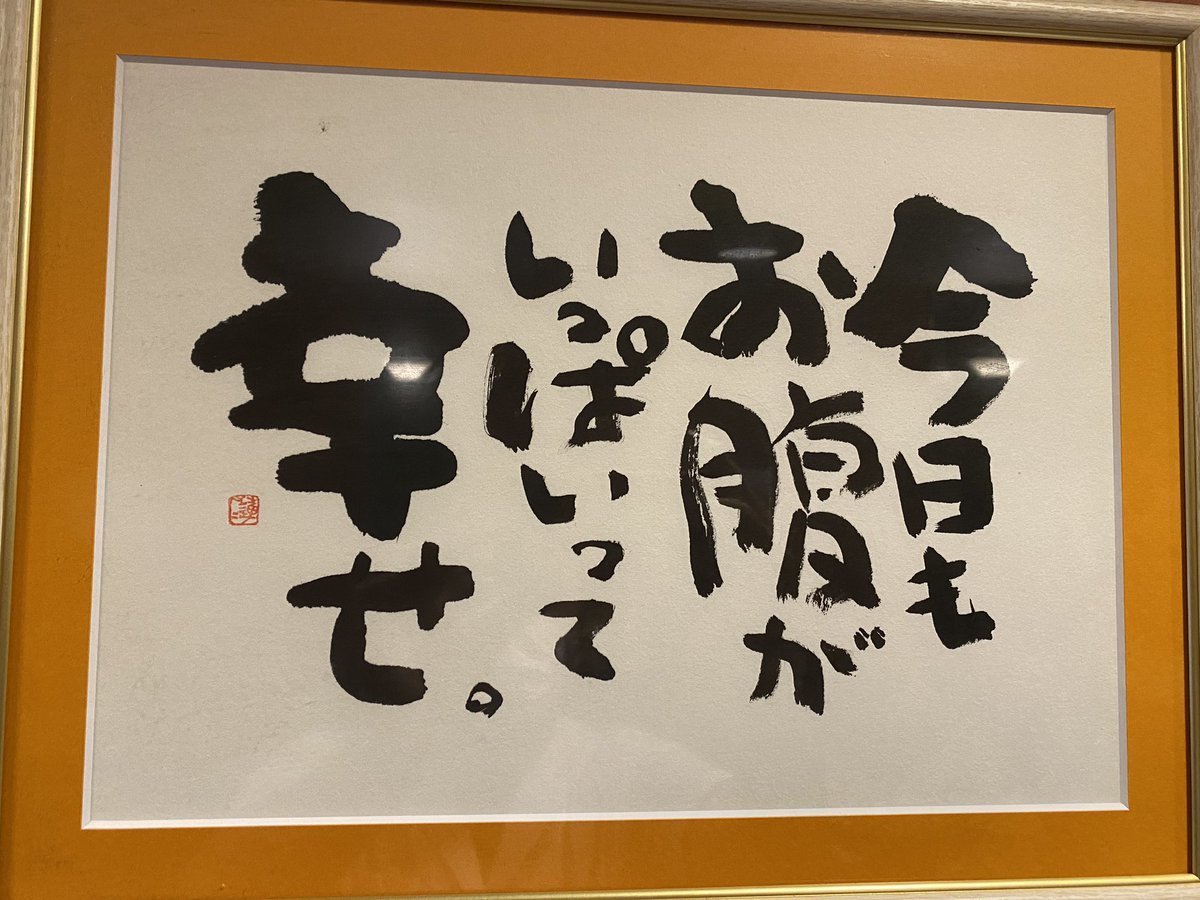 今日も
お腹が
いっぱいって
幸せ。